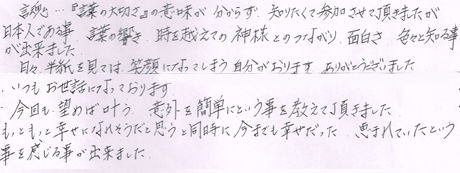 言魂…『言葉の大切さ』の意味が分からず、知りたくて参加させて頂きましたが
日本人である事、言葉の響き、時を越えての神様とのつながり、面白さ、色々と知る事
が出来ました。
日々、半紙を見ては、笑顔になってしまう自分がおります。ありがとうございました。
・いつもお世話になっております。
・今回も、望めば叶う、意外と簡単にという事を教えて頂きました。
もっともっと幸せになれそうだと思うと同時に今までも幸せだった、恵まれていたという
事を感じる事が出来ました。